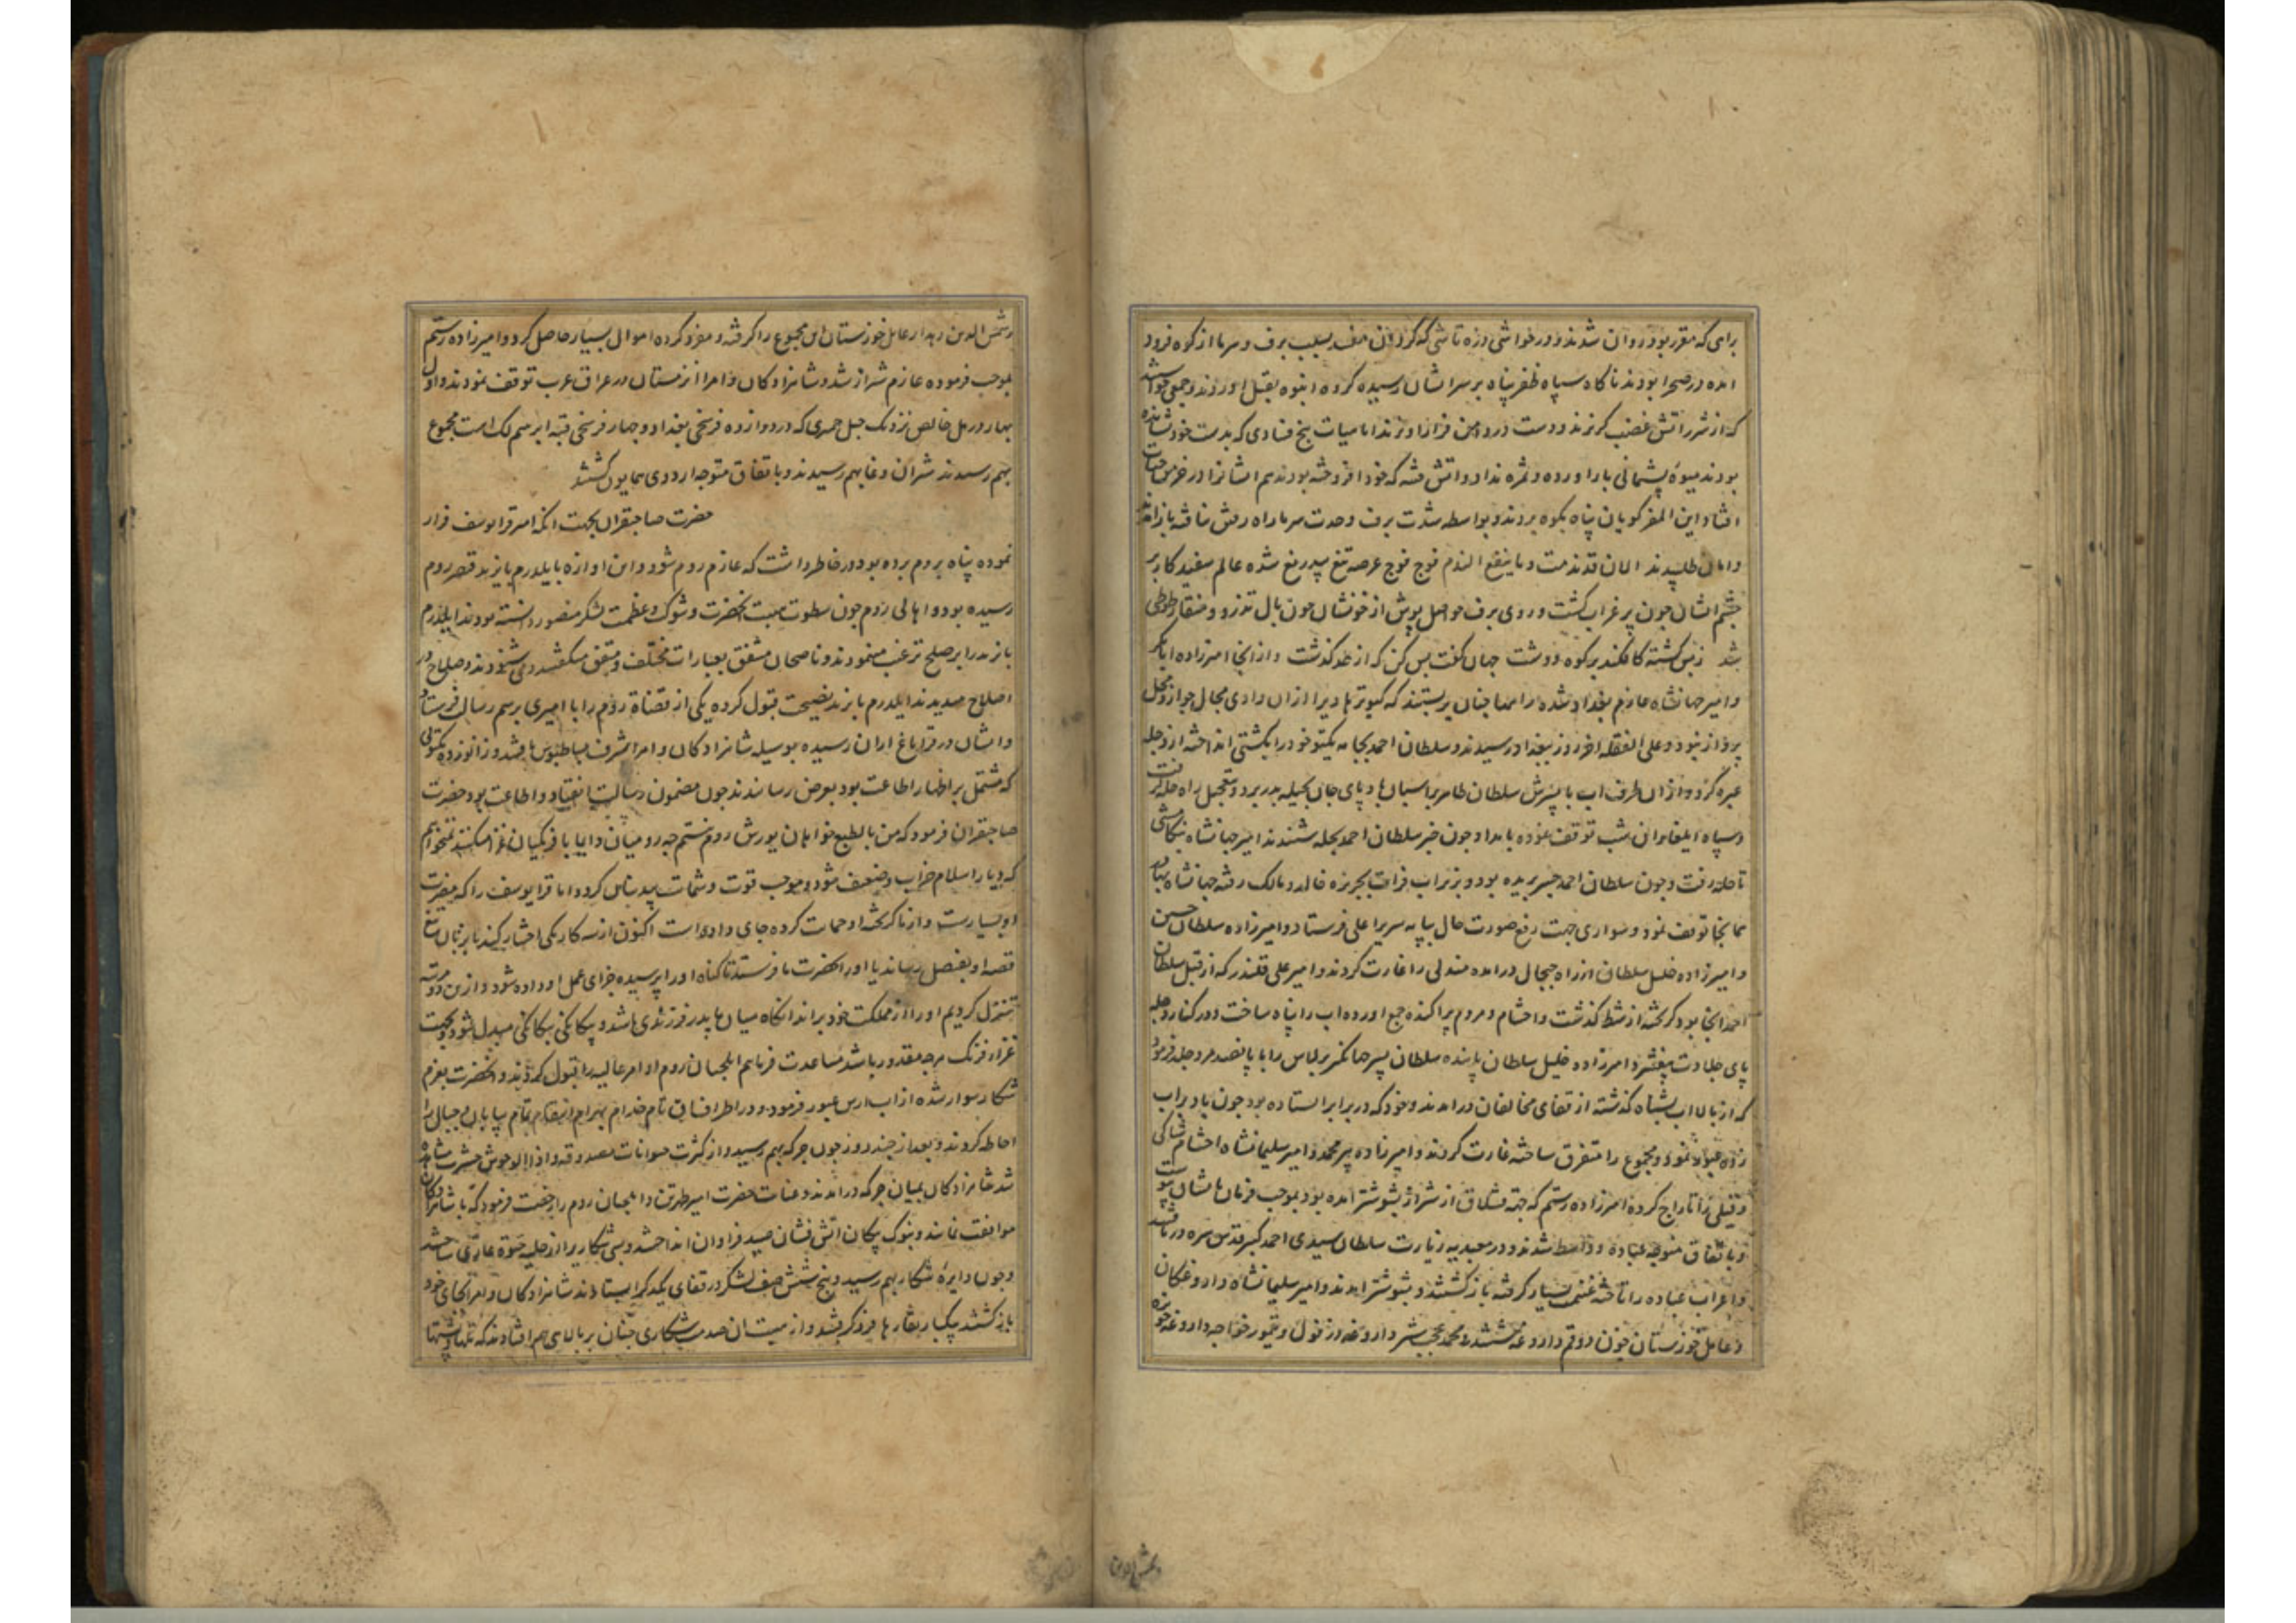 براهی که مقرر بود روان شدند و در خواشی دزه تاشی که کردان مفسد بسبب برف و سرما از کوه فرود
امده در صحرا بودند ناکاه سپاه ظفر پناه بر سر ایشان رسیده کروه انبوه بقتل اوردند و جمعی
که از شرر اتش غضب کریزند و دست در دامن فرار اویزند اما میات بیخ فسادی که بدست خود نشانده
بودند میوهٔ پشیمانی بار اورده و ثمره نداد و اتش فتنه که خود افروخته بودند هم ایشانرا در خرمن حیات
افتاد این المفر کویان پناه بکوه بردند و بواسطه شدت برف و حدت سرما راه رفتن نیافته باز امدند
و امان طلبیدند الان قد ندمت و ما ینفع الندم فوج فوج عرصه تیغ بیدریغ شده عالم سفید کار بر
چشم ایشان چون پر غراب کشت و روی برف حواصل پوش از خونشان چون بال تذرو و منقار طوطی
شد زبس کشته کافکند بر کوه و دشت جهان کفت بس کن که از حد کذشت و از انجا امیرزاده ابابکر
و امیر جهانشاه عازم بغداد شده راهها چنان بربستند که کبوتر هادیرا ازان وادی مجال جواز و محل
پرواز نبود و علی الغفله اخر روز ببغداد رسیدند و سلطان احمد بجامه یکتو خود را بکشتی انداخته از دجله
عبره کرد و ازان طرف اب با پسرش سلطان طاهر بر اسبان بادپای جان بحیله بدر برد و بتعجیل راه حله کرفت
و سپاه ایلغار ان شب توقف نموده بامداد چون خبر سلطان احمد بحله شنیدند امیر جهانشاه
تا حله رفت و چون سلطان احمد جسر بریده بود و بزیر اب فرات بجزیره خالد و مالک رفته جهانشاه بهادر
همانجا توقف نمود و سواری جهت رفع صورت حال بپایه سریر اعلی فرستاد و امیرزاده سلطان حسین
و امیرزاده خلیل سلطان از راه جبجال درامده مندلی را غارت کردند و امیر علی قلندر که از قبل سلطان
احمد انجا بود کریخته از شط کذشت و احشام و مردم پراکنده جمع اورده اب را پناه ساخت و در کنار دجله
پای جلادت بیفشرد امیرزاده خلیل سلطان پاینده سلطان پسر جهانکیر برلاس را با پانصد مرد جلد فرمود
که از بالای اب بشناه کذشته از قفای مخالفان درامدند و خود که در برابر ایستاده بود چون باد بر اب
زده عبور نمود و مجموع را متفرق ساخته غارت کردند و امیرزاده پیر محمد و امیر سلیمانشاه احشام ساکی
و فیلی را تاراج کرده امیرزاده رستم که جهة قشلاق از شیراز بشوشتر امده بود بموجب فرمان بایشان پیوست
و باتفاق متوجه عباده و واسط شدند و در معبدیه زیارت سلطان سیدی احمد کبیر قدس سره دریافتند
و اعراب عباده را تاخته غنیمت بسیار کرفته باز کشتند و بشوشتر امدند و امیر سلیمانشاه داروغکان
و عامل خوزستان چون دوقم داروغه ششتر و محمد عجب شیر داروغه دزفول و تیمور خواجه داروغه حویزه
و شمس الدین
و شمس الدین دهدار عامل خوزستان این مجموع را کرفته و مفرد کرده اموال بسیار حاصل کرد و امیرزاده رستم
بموجب فرموده عازم شیراز شد و شاهزادکان و امرا ان زمستان در عراق عرب توقف نمودند و اول
بهار در مل خالص نزدیک جبل حمری که در دوازده فرسخی بغداد و چهار فرسخی قبه ابرهیم لک است مجموع
بهم رسیدند شیران وغا بهم رسیدند و باتفاق متوجه اردوی همایون کشتند
حضرت صاحبقران بجهت انکه امیر قرا یوسف فرار
نموده پناه بروم برده بود در خاطر داشت که عازم روم شود و این اوازه بایلدرم بایزید قیصر روم
رسیده بود و اهالی روم چون سطوت هیبت انحضرت و شوکت و عظمت لشکر منصور دانسته بودند ایلدرم
بایزید را بر صلح ترغیب مینمودند و ناصحان مشفق بعبارات مختلف و متفق میکفتند و می شنودند و صلاح در
اصلاح میدیدند ایلدرم بایزید نصیحت قبول کرده یکی از قضاة روم را با امیری برسم رسالت فرستاد
و ایشان در قراباغ اران رسیده بوسیله شاهزادکان و امرا شرف بساطبوس یافتند و زانو زده مکتوبی
که مشتمل بر اظهار اطاعت بود بعرض رسانیدند چون مضمون رسالت انقیاد و اطاعت بود حضرت
صاحبقران فرمود که من بالطبع خواهان یورش روم نیستم چه رومیان دایما با فرنکیان غزا میکنند نمیخواهم
که دیار اسلام خراب و ضعیف شود و موجب قوت و شماتت بیدینان کردد اما قرا یوسف را که مضرت
او بسیارست و از ما کریخته او حمایت کرده جای داده است اکنون از سه کار یکی اختیار کند یا بزبان تیغ
قصه او بفیصل رساند یا او را بحضرت ما فرستد تا کناه او را پرسیده جزای عمل او داده شود و ازین دو مرتبه
تنزل کردیم او را از مملکت خود براند انکاه میان ما پدر فرزندی باشد و بیکانکی بیکانکی مبدل شود و بجهت
غزاء فرنک هرچه مقدور باشد مساعدت فرماییم ایلچیان روم اوامر عالیه را قبول کردند و انحضرت بعزم
شکار سوار شده از اب ارس عبور فرمود و در اطراف اق تام خدام بهرام انتقام تمام بیابان و جبال را
احاطه کردند و بعد از چند روز چون جرکه بهم رسید و از کثرت حیوانات مصدوقه و اذا الوحوش حشرت مشاهده
شد شاهزادکان بمیان جرکه درامدند و عنایت حضرت امیر طهرتن و ایلچیان روم را رخصت فرمود که با شاهزادکان
موافقت نمایند و بنوک پیکان اتش فشان صید فراوان انداختند و بسی شکاریرا از حلیه حیوة عاری ساختند
و چون دایرهٔ شکار بهم رسید و پنج شش صف لشکر در قفای یکدکر ایستادند شاهزادکان و امرا بجای خود
باز کشتند بیکبار نقارها فرو کرفتند و از هیبت ان صدا شکاری چنان بر بالای هم افتادند که تلها و پشتها